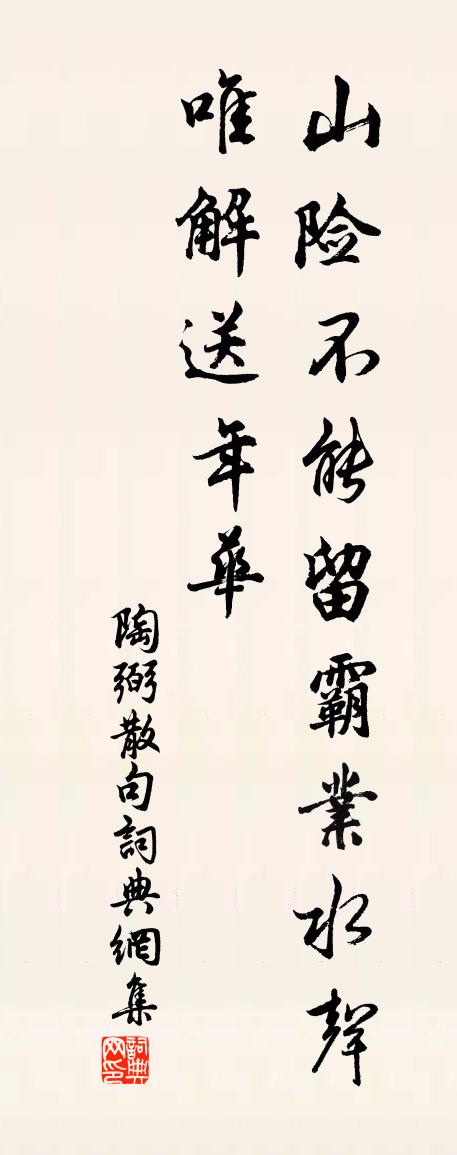 山险不能留霸業水聲
唯解送年華
陶弼散句詞典網集
詞典网印